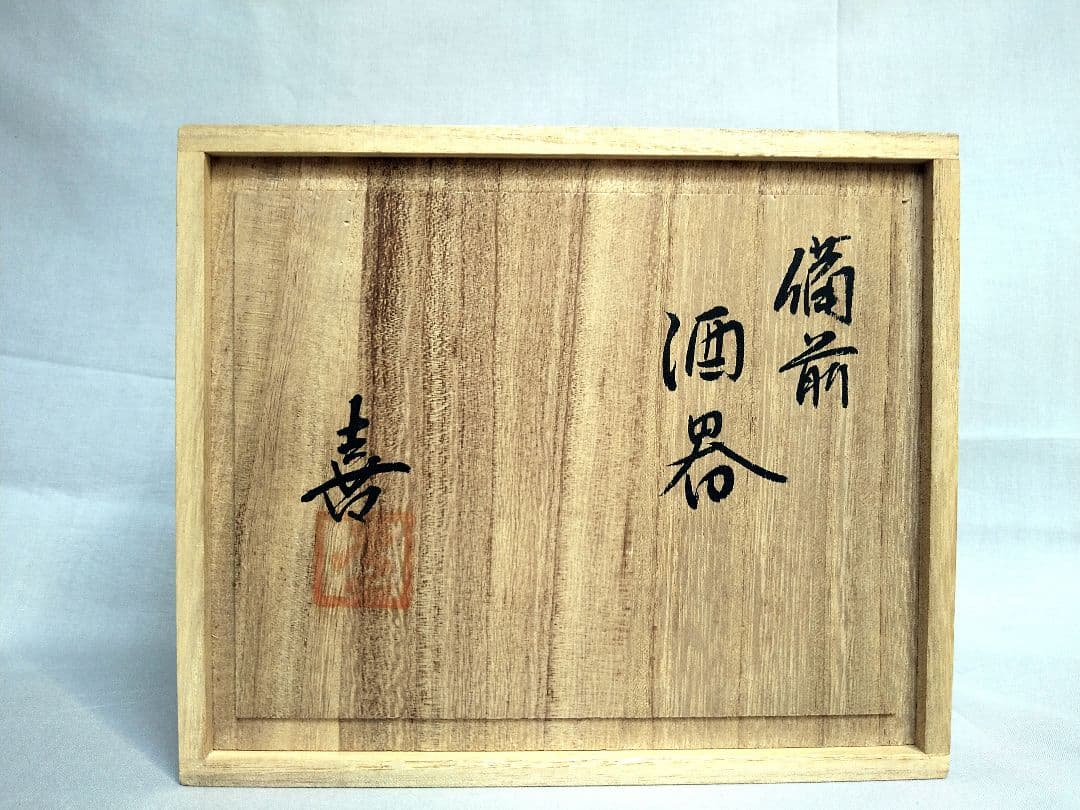 備前
酒器
喜